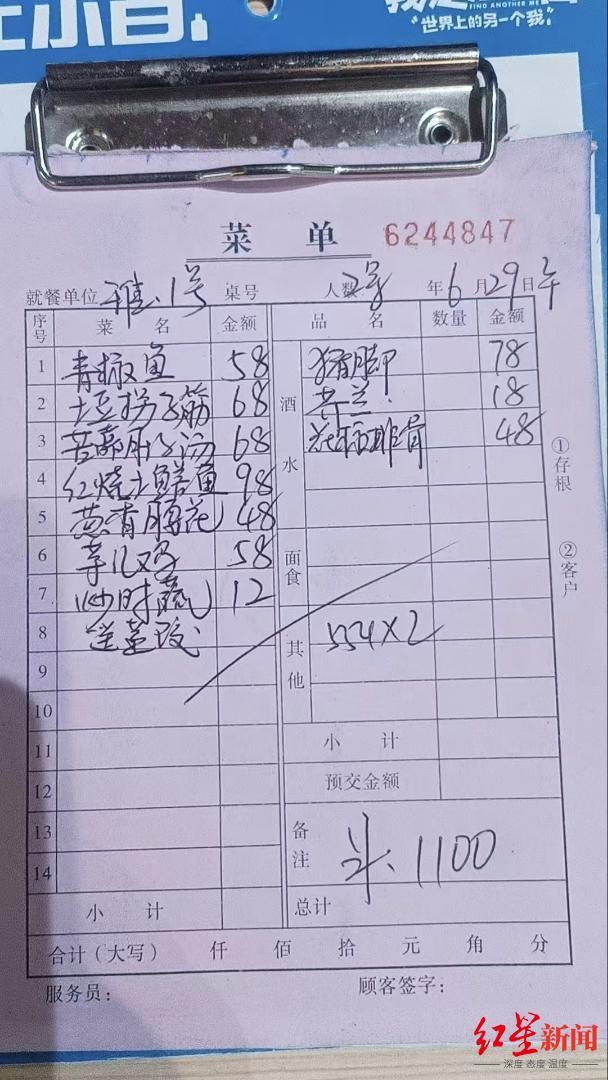 FIND ANOTHER ME
"世界上的另一个我"
菜 单 6244847
就餐单位 雅.1号 桌号 人数 2号 年 6 月 29 日 午
序号 菜 名 金额 品 名 数量 金额
1 青椒鱼 58 猪脚 78
2 土豆拐子筋 68 酒水 芥兰. 18
3 苦藠肚子汤 68 排骨 48
4 红烧土鳝鱼 98
5 葱香腰花 48
6 芋儿鸡 58 面食
7 炒时蔬 12
8 送 其他 554×2
9
10
11 小 计
12 预交金额
13 备注 1100
14
小 计 总计
合计(大写) 仟 佰 拾 元 角 分
服务员: 顾客签字:
①存根
②客户
红星新闻
深度 态度 温度